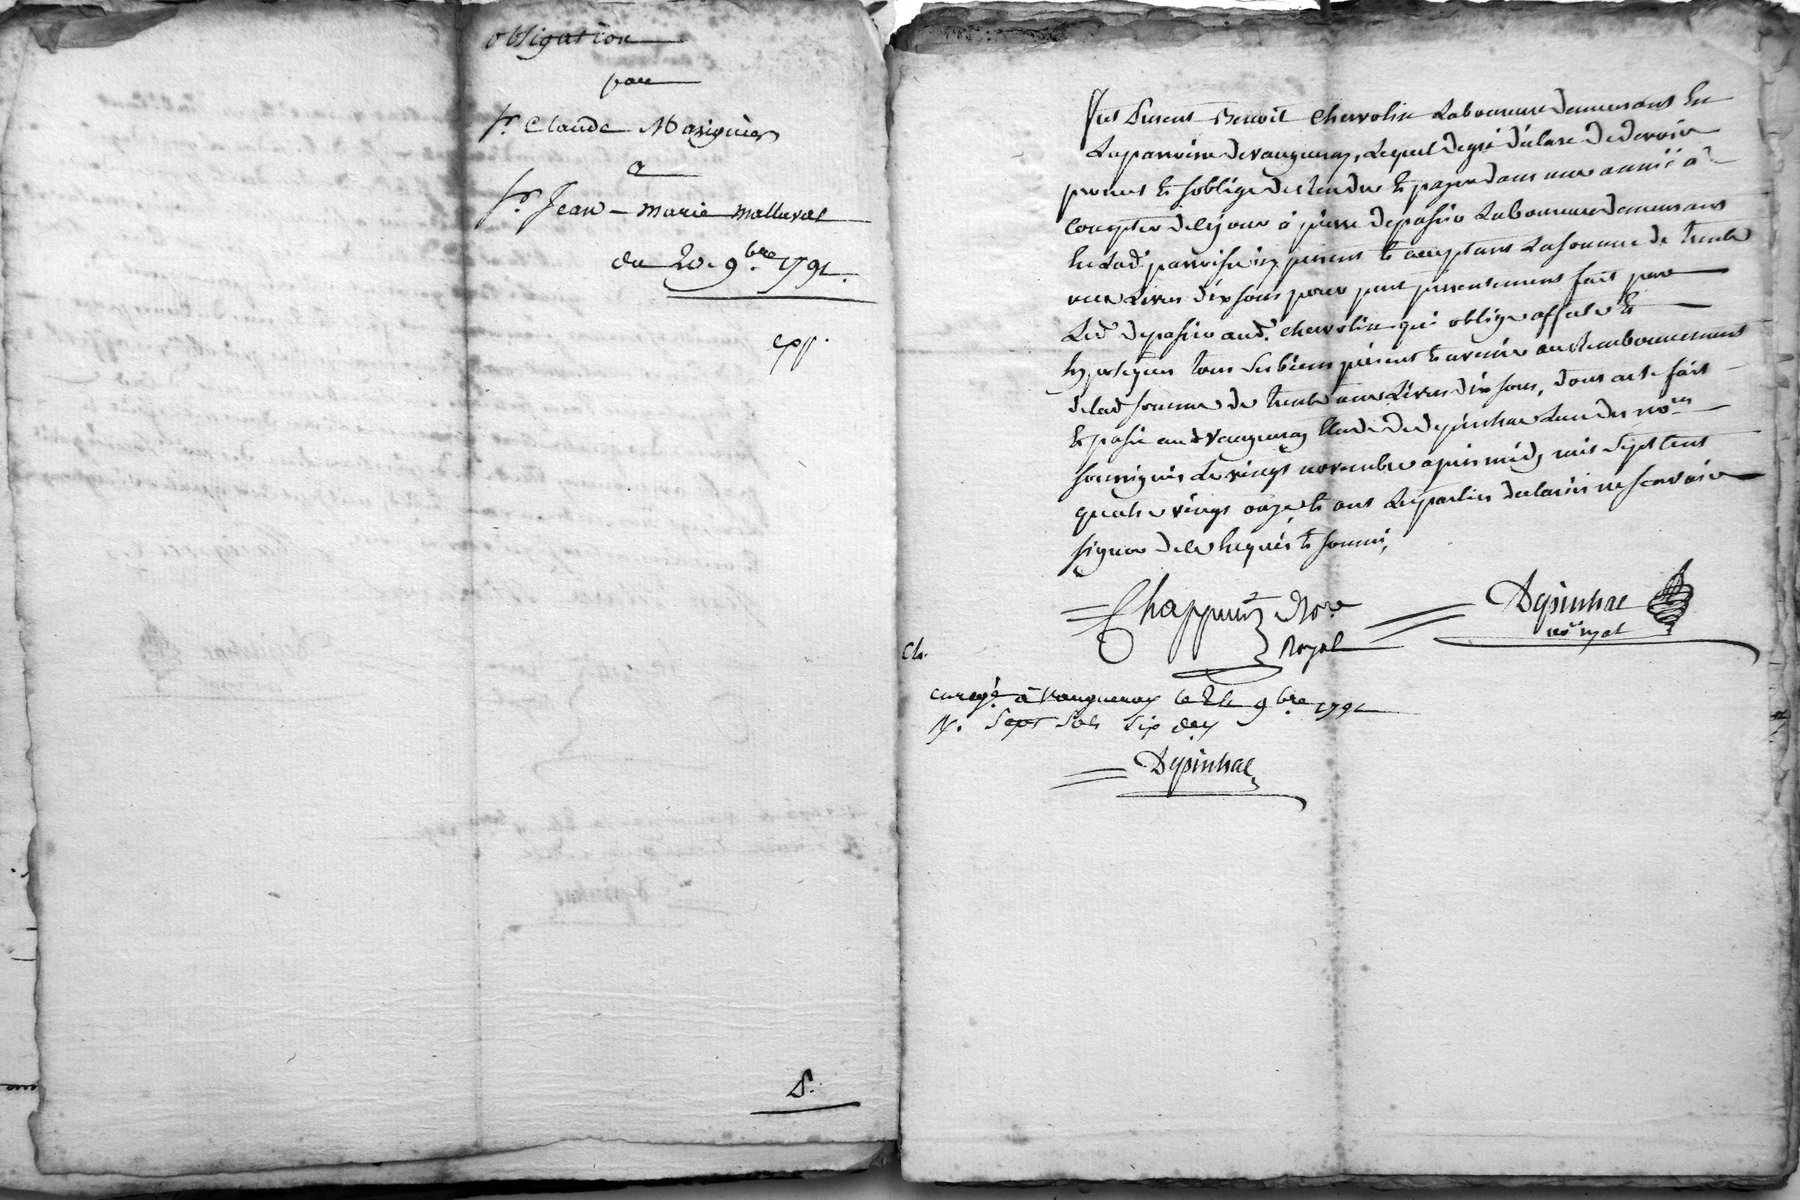 obligation
par
Sr. Claude Mazignier
a
Sr. Jean-Marie Malleval
du 20. 9bre 1791.
exp.
S.
Fut présent Benoit Chervolin Laboureur demeurant en
La parroisse de vaugneray, Lequel de gré déclare de devoir
promet et soblige de rendre et payer dans une année à
compter de ce jour à pierre depassio Laboureur demeurant
en Lad. parroisse icy présent et acceptant La somme de trente
une Livres dix sous pour pret présentement fait par
Led. depassio aud. Chervolin qui oblige affecte et
hypoteque tous ses biens présent et avenir au Remboursement
de lad. somme de trente une Livres dix sous, dont acte fait
et passé aud. vaugneray Etude de depinhac L'un des nores
soussignés Le vingt novembre apres midy mil sept cent
quatre vingt onze et ont Les parties déclaré ne scavoir
signer de ce Enquis et sommé,
Chappuis Nore
Royal
Depinhac
nore royal
Ch.
enregé. à Vaugneray le 24 9bre 1791
R. Sept Sols Six den
Depinhac